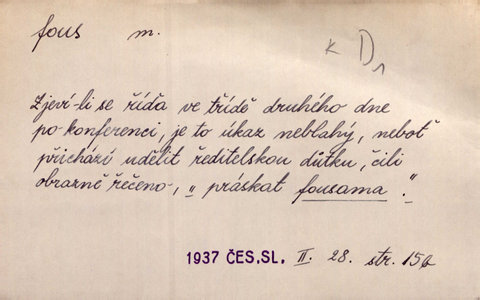 fous m.
k D1
Zjeví-li se říďa ve třídě druhého dne
po konferenci, je to úkaz neblahý, neboť
přichází udělit ředitelskou důtku, čili
obrazně řečeno, „ práskat fousama “.
1937 ČES.SL. II. 28. str. 156